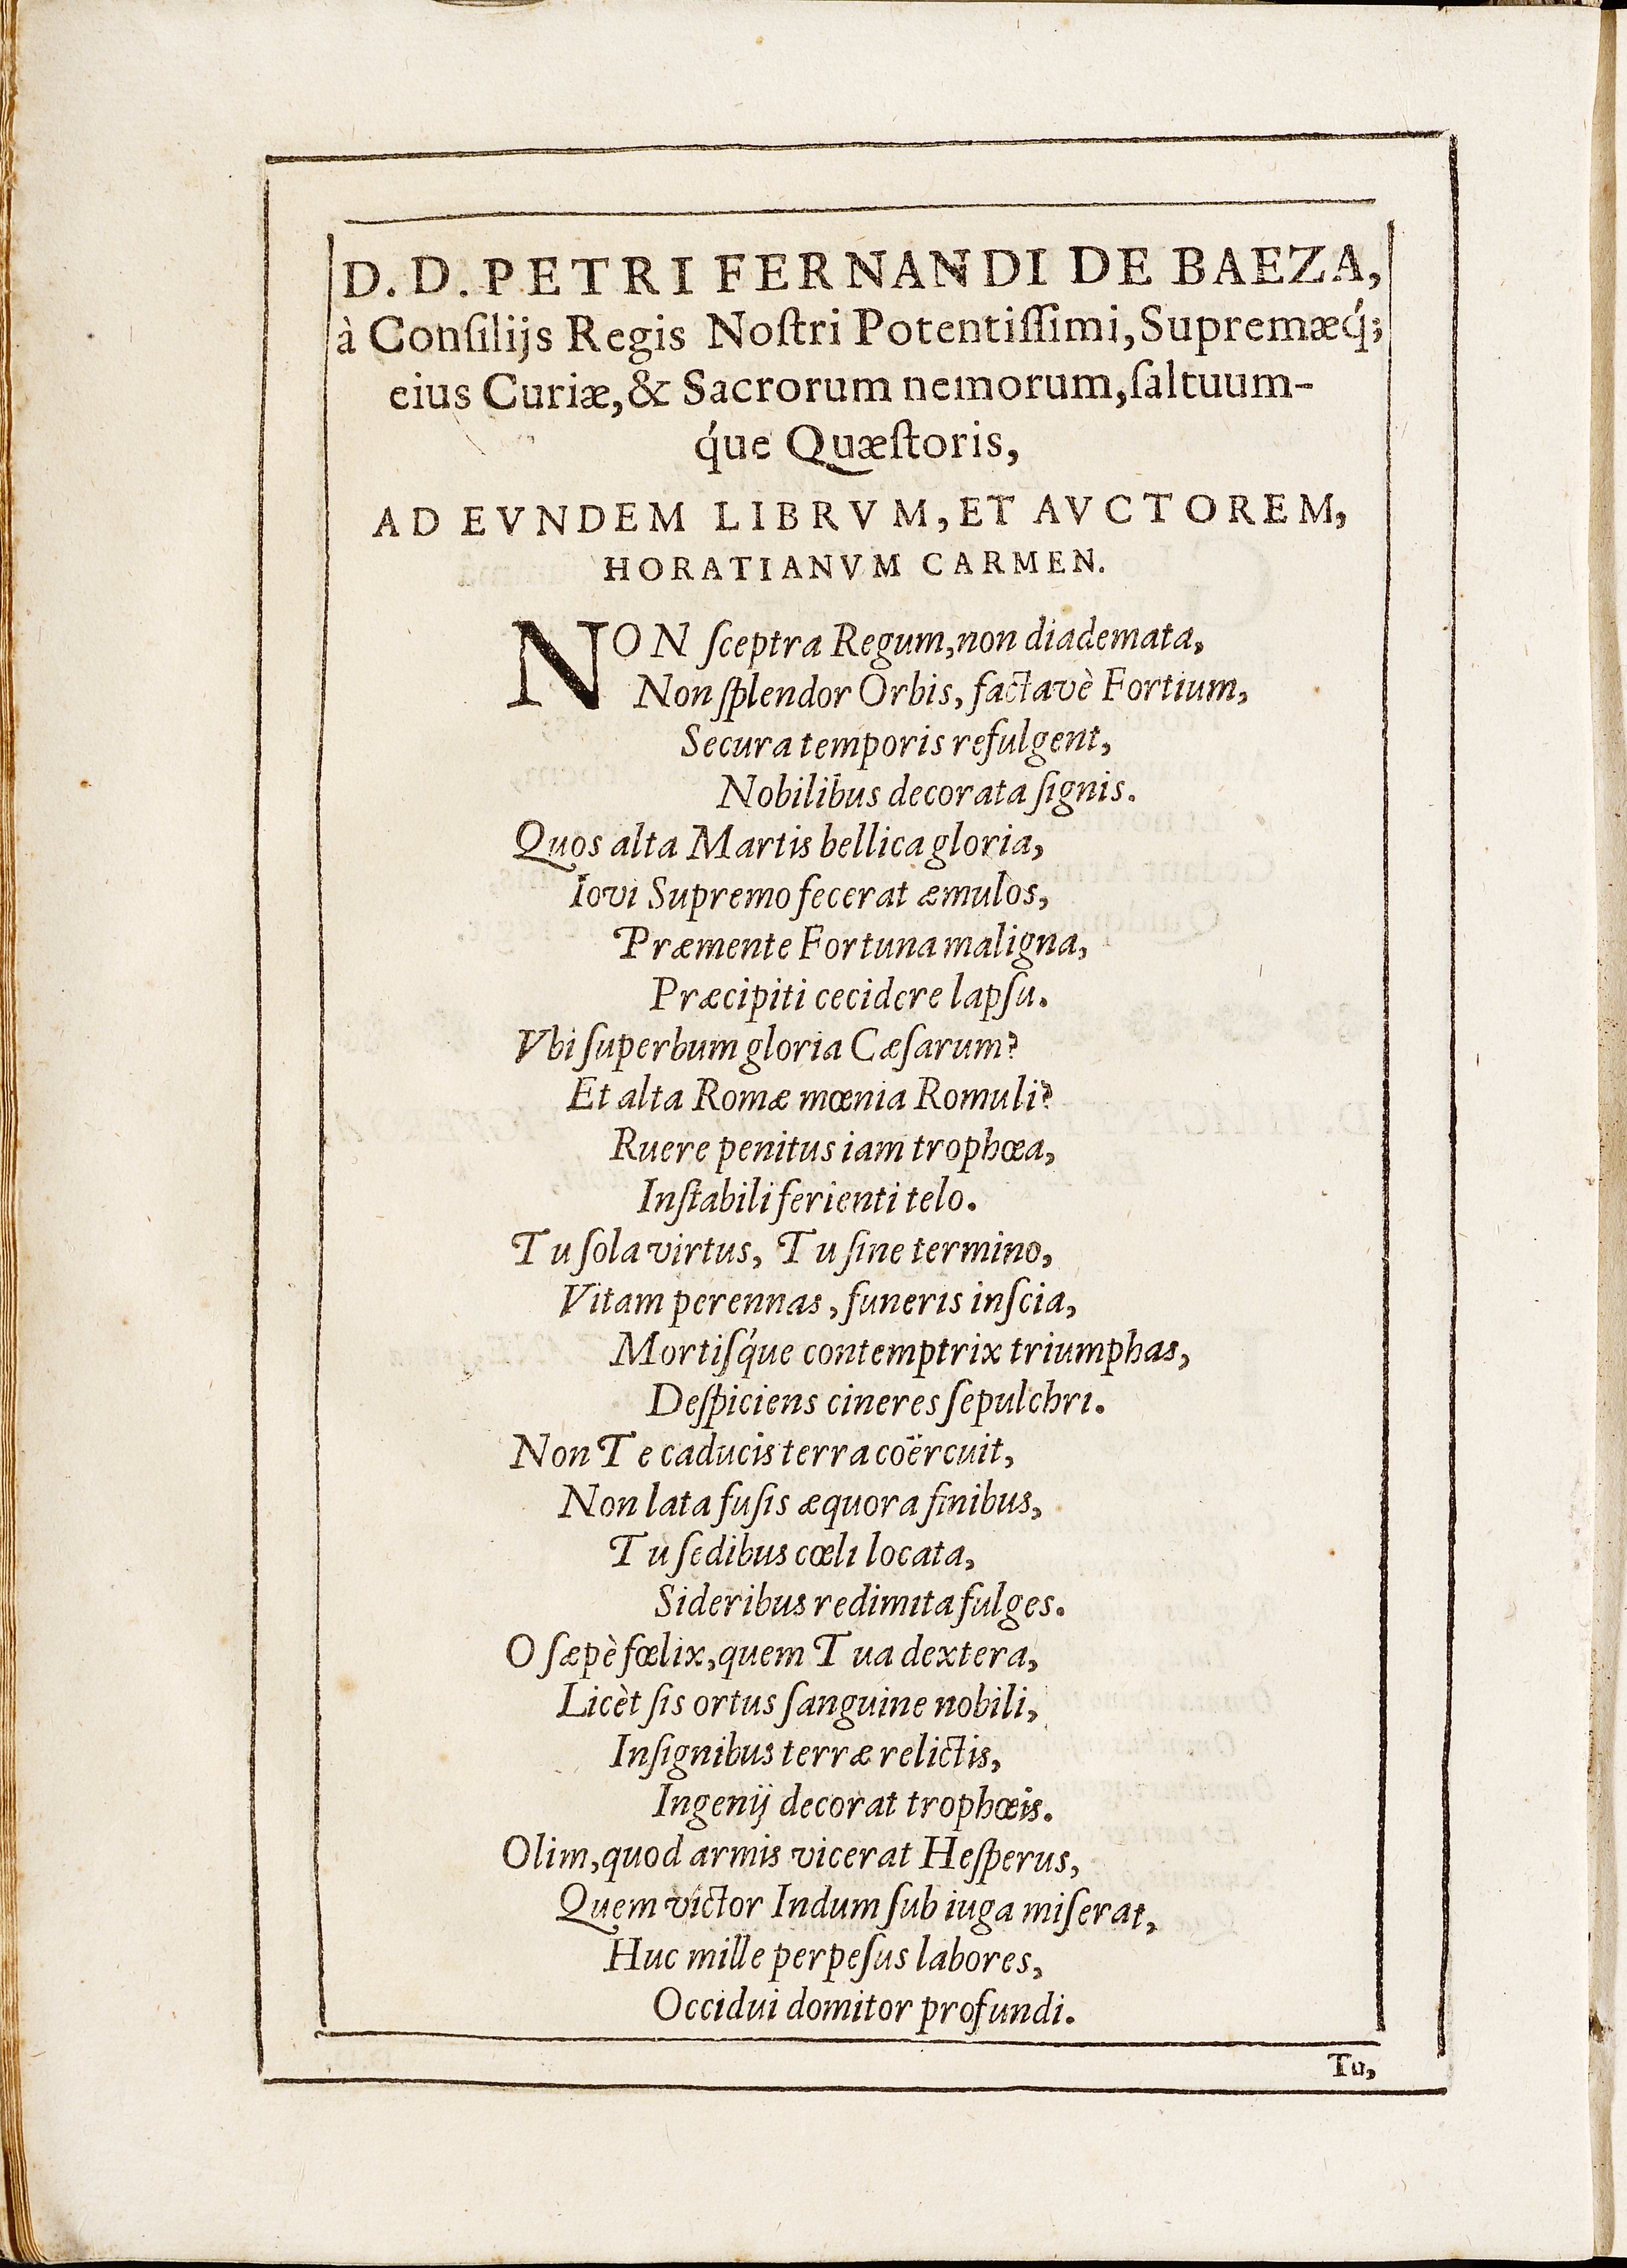 D. D. PETRI FERNANDI DE BAEZA,
à Conſilijs Regis Noſtri Potentiſſimi, Supremæq́;
eius Curiæ, & Sacrorum nemorum, ſaltuum-
q́ue Quæſtoris,
AD EVNDEM LIBRVM, ET AVCTOREM,
HORATIANVM CARMEN.
NON ſceptra Regum, non diademata,
Non ſplendor Orbis, factavè Fortium,
Secura temporis refulgent,
Nobilibus decorata ſignis.
Quos alta Martis bellica gloria,
Iovi Supremo fecerat æmulos,
Præmente Fortuna maligna,
Præcipiti cecidere lapſu.
Vbi ſuperbum gloria Cæſarum?
Et alta Romæ mœnia Romuli?
Ruere penitus iam trophœa,
Inſtabili ferienti telo.
Tu ſola virtus, Tu ſine termino,
Vitam perennas, funeris inſcia,
Mortiſq́ue contemptrix triumphas,
Deſpiciens cineres ſepulchri.
Non Te caducis terra coërcuit,
Non lata fuſis æquora finibus,
Tu ſedibus cœli locata,
Sideribus redimita fulges.
O ſæpè fœlix, quem Tua dextera,
Licèt ſis ortus ſanguine nobili,
Inſignibus terræ relictis,
Ingenij decorat trophœis.
Olim, quod armis vicerat Heſperus,
Quem victor Indum ſub iuga miſerat,
Huc mille perpeſus labores,
Occidui domitor profundi.
Tu,